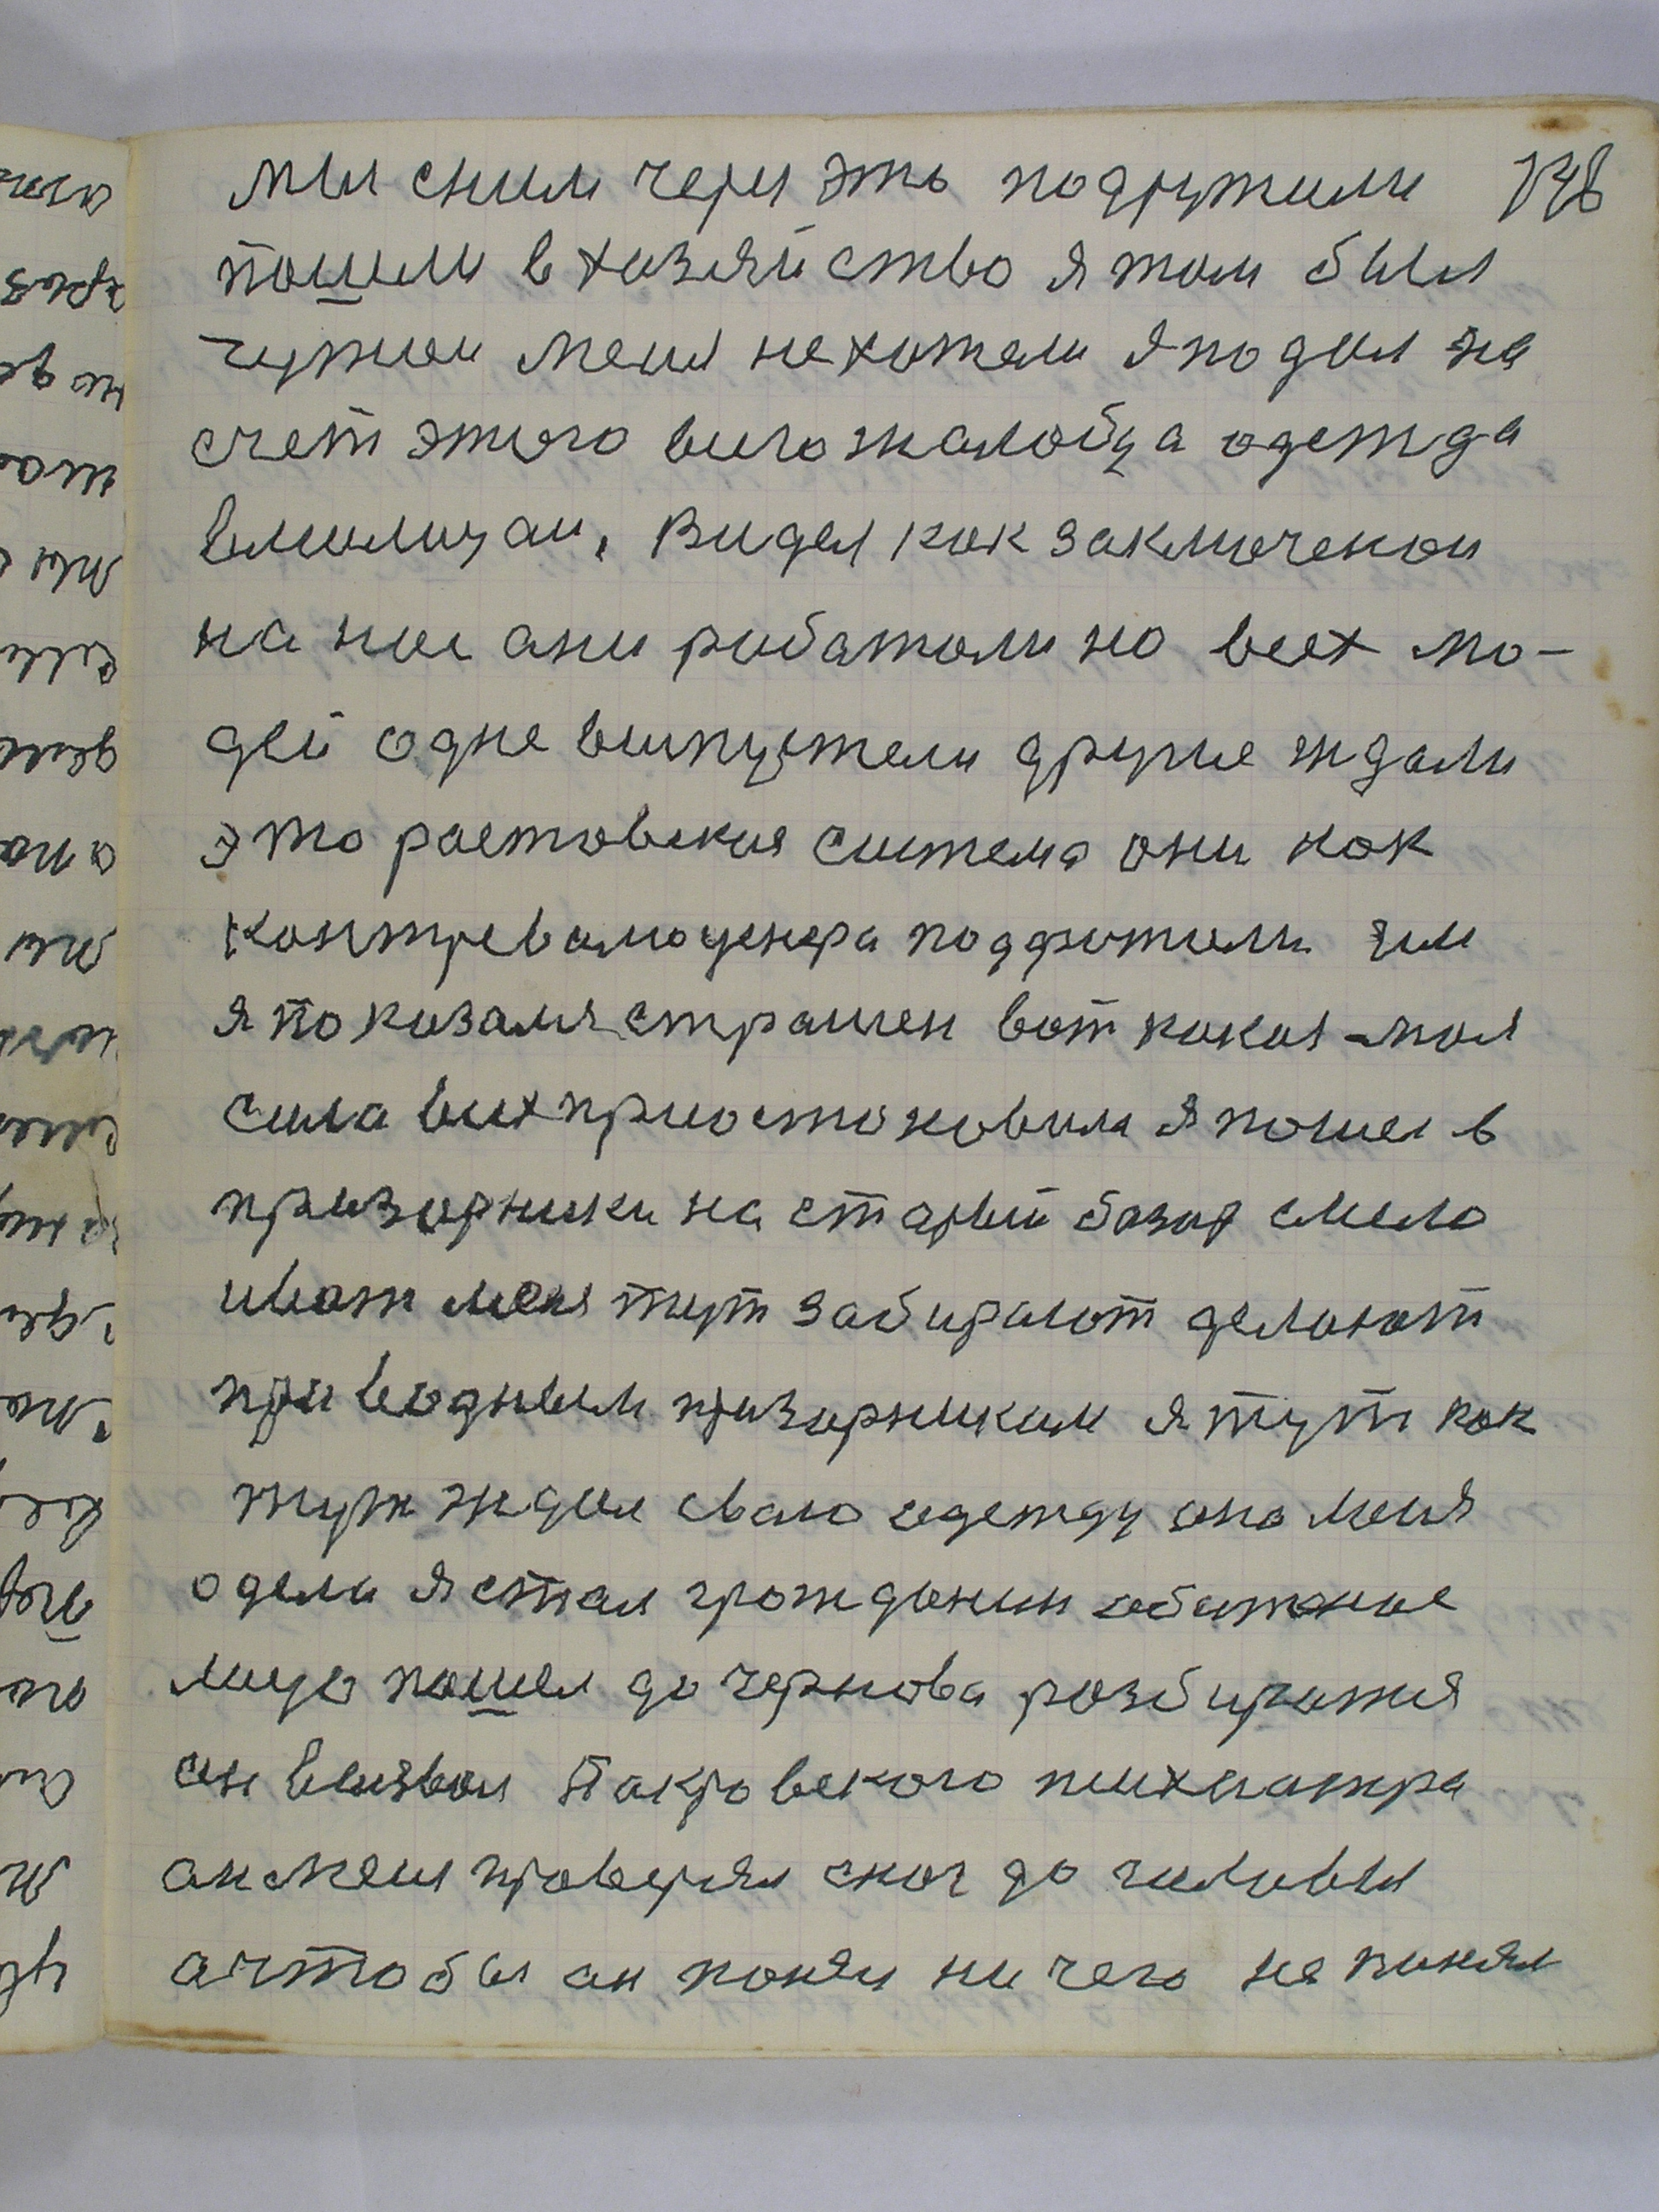 мы сним через это подружили 148
пошли в хазяйство я там был
чужои меня нехотели я подал на
счет этого виго жалобу а одежда
вмилицаи, Видел как заключенои
на нас ани работали но всех лю-
дей одне выпустели другие ждали
это растовская система они как
я показался страшен вот какая моя
сила вих приостоновила я пошел в
призорники на старый базар смело
ивот меня тут забирают делают
приводным призорникам я тут как
тут ждал сваю одежду она меня
одела я стал гражданин
лицо пошел до чернова разбиратся
он вызвал Пакровского психиатра
ан меня проверял сног до галавы
ачтобы ан понял ничего не понял